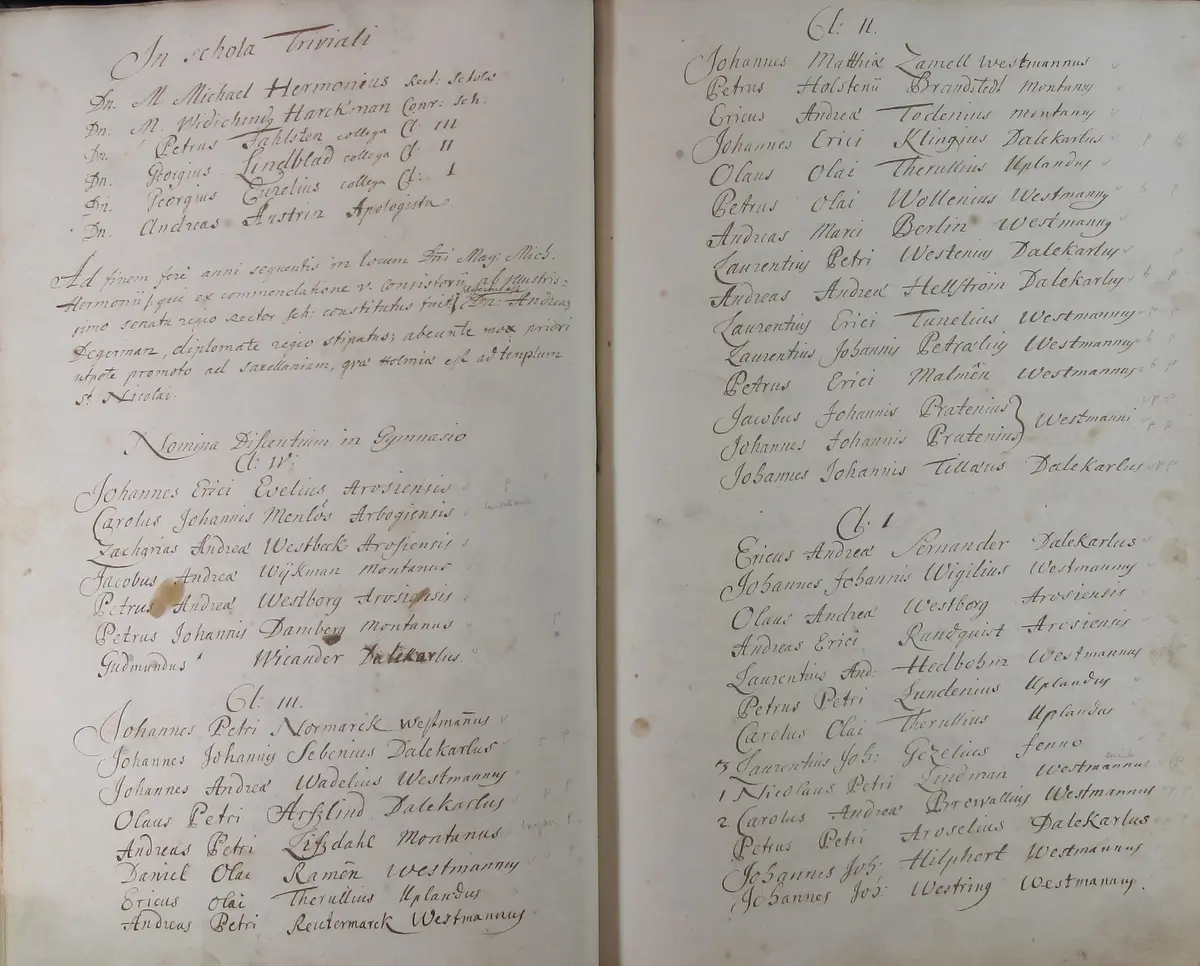 In schola Triviali
Dn. M. Michael Hermonius Rect: scholæ
Dn. M. Widichind Harckman Conr: sch:
Dn. Petrus Fahlsten collega Cl: III
Dn. Georgius Lindblad collega Cl: II
Dn. Georgius Eurelius collega Cl: I
Dn. Andreas Austrin Apologista
Ad finem ferè anni sequentis in locum Dni Mag: Mich.
Hermonii, qui ex commendatione v. Consistorii Illustris-
simo senatu regio Rector sch: constitutus fuit, Dn: Andreas
Degerman, diplomate regio stipatus; abeunte mox priori
utpote promoto ad sacellaniam, qvæ Holmiæ est ad templum
St. Nicolai.
Nomina Discentium in Gymnasio
Cl: IV:
Johannes Erici Evelius Arosiensis
Carolus Johannis Menlös Arbogiensis
Zacharias Andreæ Westbeck Arosiensis
Jacobus Andreæ Wijkman Montanus
Petrus Andreæ Westborg Arosiensis
Petrus Johannis Damberg Montanus
Gudmundus Wicander Dalekarlus
Cl: III.
Johannes Petri Normarck Westmañus
Johannes Johannis Sebenius Dalekarlus
Johannes Andreæ Wadelius Westmannus
Olaus Petri Arfzlind Dalekarlus
Andreas Petri Lifzdahl Montanus
Daniel Olai Ramên Westmannus
Ericus Olai Therullius Uplandus
Andreas Petri Reutermarck Westmannus
Cl: II.
Johannes Matthiæ Zamell Westmannus
Petrus Holstenii Brandstedt Montanus
Ericus Andreæ Todenius Montanus
Johannes Erici Klingius Dalekarlus
Olaus Olai Therullius Uplandus
Petrus Olai Wollenius Westmannus
Andreas Marci Berlin Westmannus
Laurentius Petri Westenius Dalekarlus
Andreas Andreæ Hellström Dalekarlus
Laurentius Erici Tunelius Westmannus
Laurentius Johannis Petrælius Westmannus
Petrus Erici Malmên Westmannus
Jacobus Johannis Pratenius
Johannes Johannis Pratenius } Westmanni
Johannes Johannis Tillæus Dalekarlus
Cl: I.
Ericus Andreæ Sernander Dalekarlus
Johannes Johannis Wigilius Westmannus
Olaus Andreæ Westberg Arosiensis
Andreas Erici Randquist Arosiensis
Laurentius And: Hedbohm Westmannus
Petrus Petri Lundenius Uplandus
Carolus Olai Therullius Uplandus
3 Laurentius Joh: Gezelius Fenno
1 Nicolaus Petri Lindman Westmannus
2 Carolus Andreæ Browallius Westmannus
Petrus Petri Aroselius Dalekarlus
Johannes Joh: Hilphert Westmannus
Johannes Joh: Westring Westmannus.